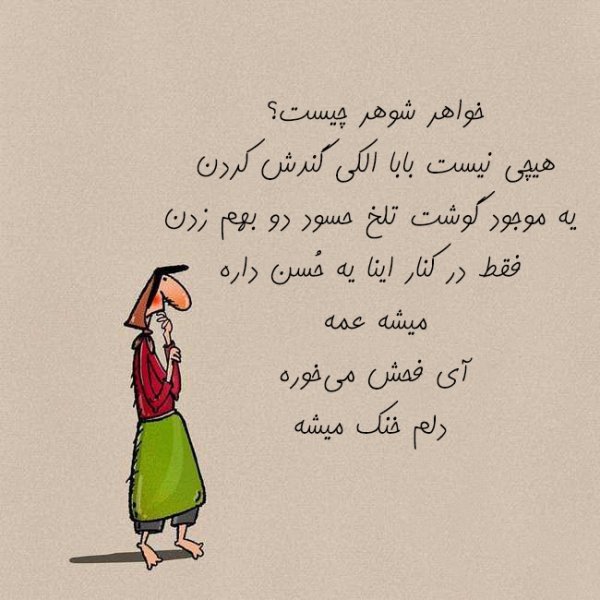 خواهر شوهر چیست؟
هیچی نیست بابا الکی گندش کردن
یه موجود گوشت تلخ حسود دو بهم زدن
فقط در کنار اینا یه حُسن داره
میشه عمه
آی فحش می‌خوره
دلم خنک میشه